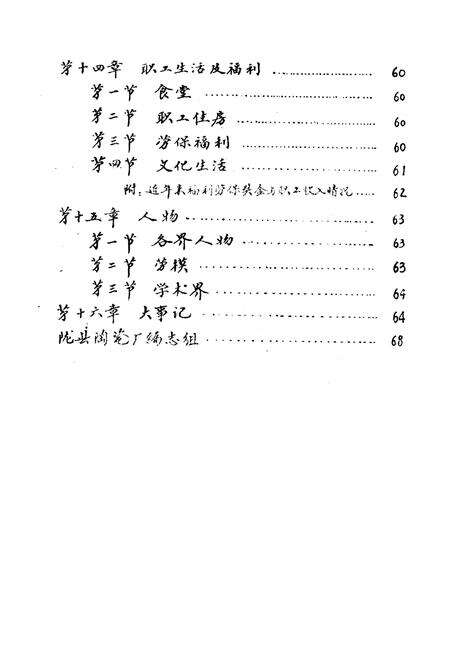 第十四章 职工生活及福利 ………………… 60
第一节 食堂 ………………… 60
第二节 职工住房 ………………… 60
第三节 劳保福利 ………………… 60
第四节 文化生活 ………………… 61
附：近年来福利劳保奖金与职工收入情况 …… 62
第十五章 人物 ………………… 63
第一节 各界人物 ………………… 63
第二节 劳模 ………………… 63
第三节 学术界 ………………… 64
第十六章 大事记 ………………… 64
陇县陶瓷厂编志组 ………………… 68